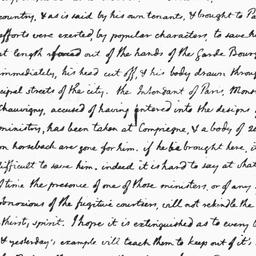 country, & as is said by his own tenants, & brought to Pa
efforts were exerted, by popular characters, to save hi
at length forced out of the hands of the Garde Bour
immediately, his head cut off, & his body drawn throug
cipal streets of the city. the Intendant of Paris, Mons
Chauvigny, accused of having entered into the designs
ministers, has been taken at Compiegne, & a body of 20
on horseback are gone for him. if he be brought here, it
difficult to save him. indeed it is hard to say at what
of time the presence of one of those ministers, or of any
obnoxious of the fugitive courtiers, will not rekindle the
thirsty spirit. I hope it is extinguished as to every
& yesterday's example will teach them to keep out of it's